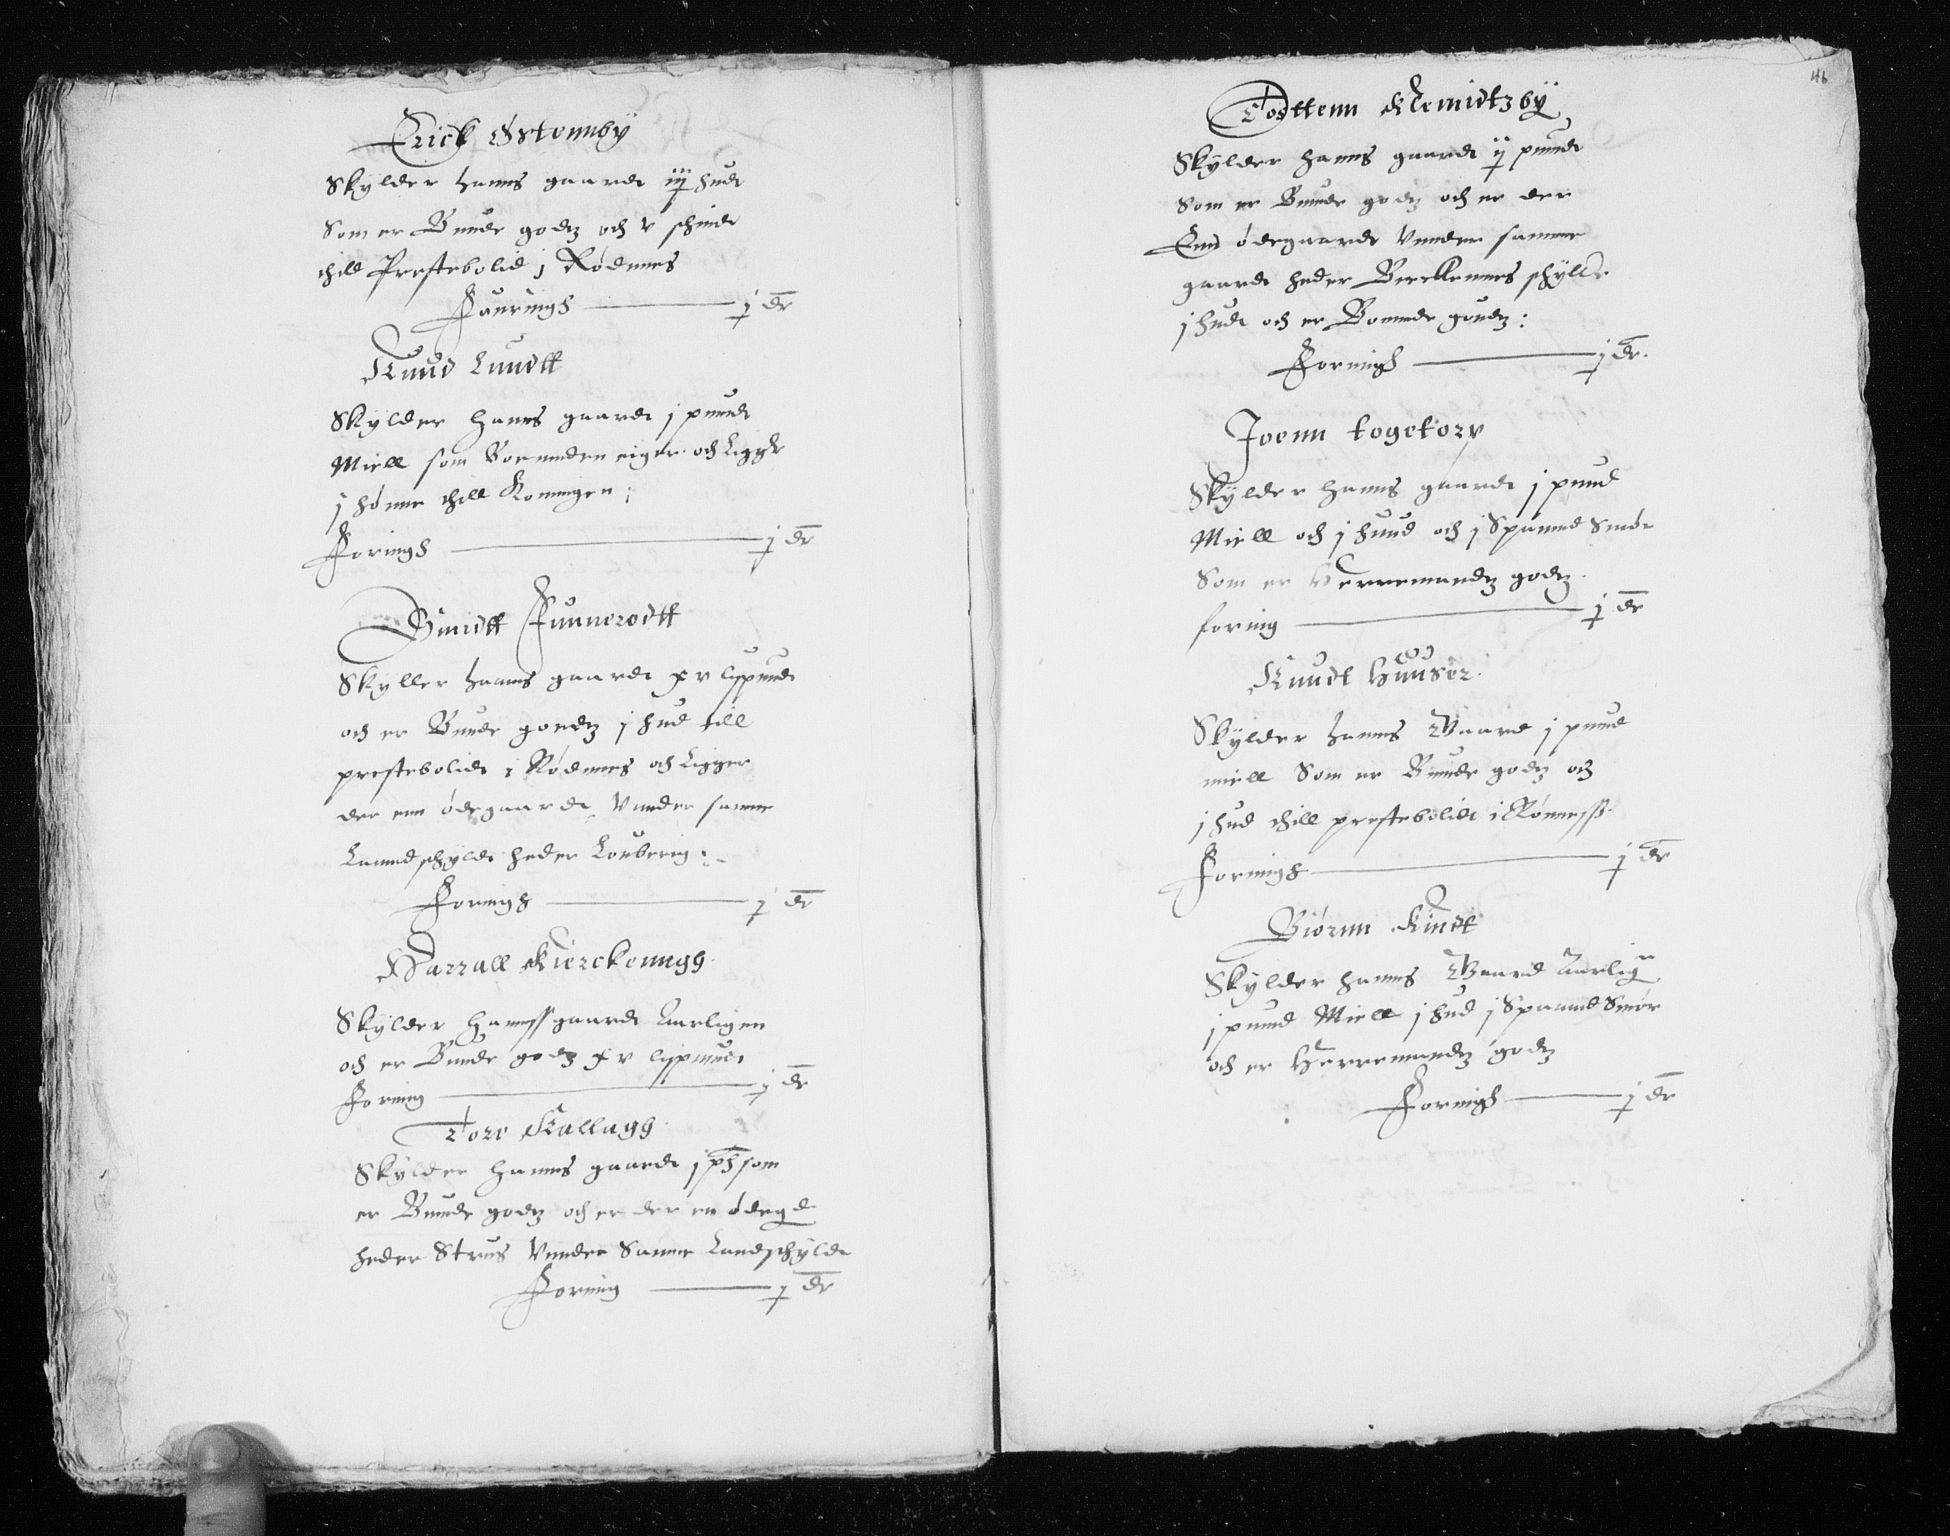 Erick Østennby
Skylder hanns gaardt iij hudt
Som er Bunde godtz och v schindt
thill Prestebolid j Rødennes
Fouringh j dr
Knud Lundtt
Skylder hanns gaardt j pundt
Miell som Boennden eiger och Ligger
j hønne thill Konningen:
Foringh j dr
Gundtt Funnerodtt
Skyller hanns gaardt xv lispundt
och er Bunde goedtz j hud till
prestebolidt i Rødennes och Ligger
der enn ødegaardt Vunder samme
Lanndschyldt heder Louberig:
Foringh j dr
Harrall Kierckenngh
Skylder hanness gaardt Aarligen
och er Bunde godtz xv lispundt
Foring j dr
Tord Kallagh
Skylder hanns gaardt j pd som
er Bunde godtz och er der en ødegd
heder Strus Vnnder Samme Landschyldt
Foring j dr
46
Tosttenn Klemidtzby
Skylder hanns gaardt ij pundt
Som er Bunde godtz och er der
End ødegaardt Vnnder samme
gaardt heder Bierkennes schyller
j hudt och er Bonnde goudtz:
Foringh j dr.
Joenn togetorp
Skylder hanns gaardt j pund
Miell och j huud och j Spannd Smør
Som er Herremandtz godtz.
foring j dr
Knudt Huuser.
Skylder hanns Gaard j pund
miell Som er Bunde godtz och
j hud thill prestebolidt i Rønness.
Foringh j dr
Biørnn Kindt
Skylder hanns Gaard Aarligen
j pund Miell j hud j Spannd Smør
och er Herremandtz godtz
Foringh j dr